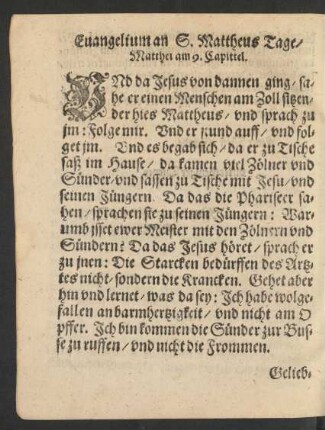 Euangelium an S. Mattheus Tage/
Matthei am 9. Capittel.
VNd da Jesus von dannen ging/ sa-
he er einen Menschen am Zoll sitzen/
der hies Mattheus/ vnd sprach zu
jm: Folge mir. Vnd er stund auff/ vnd fol-
get jm. Vnd es begab sich/ da er zu Tische
saß im Hause/ da kamen viel Zölner vnd
Sünder vnd sassen zu Tische mit Jesu/ vnd
seinen Jüngern. Da das die Phariseer sa-
hen/ sprachen sie zu seinen Jüngern: War-
umb isset ewer Meister mit den Zölnern vnd
Sündern? Da das Jesus höret/ sprach er
zu jnen: Die Starcken bedürffen des Artz-
tes nicht/ sondern die Krancken. Gehet aber
hin vnd lernet/ was da sey: Ich habe wolge-
fallen an barmhertzigkeit/ vnd nicht am O-
pffer. Ich bin kommen die Sünder zur Bus-
se zu ruffen/ vnd nicht die Frommen.
Gelieb-